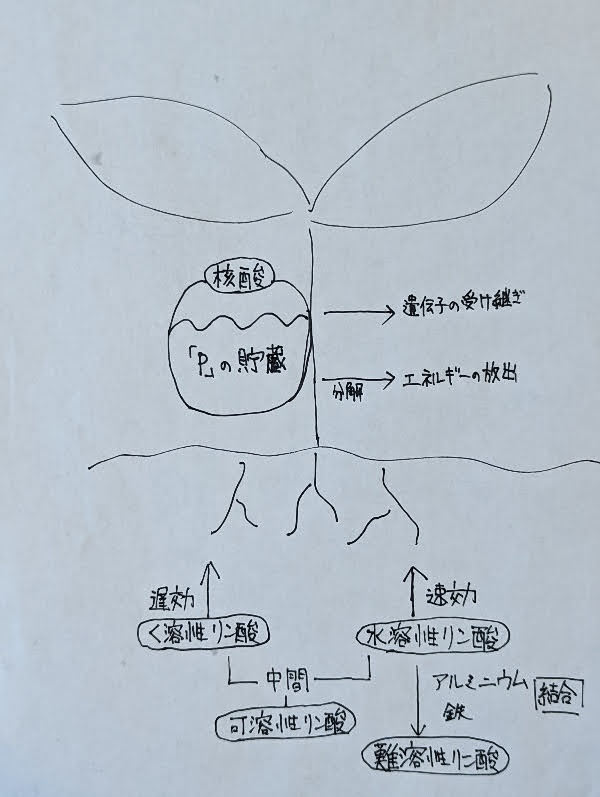 核酸
「P」の貯蔵
遺伝子の受け継ぎ
分解
エネルギーの放出
遅効
く溶性リン酸
速効
水溶性リン酸
中間
可溶性リン酸
アルミニウム
鉄
結合
難溶性リン酸